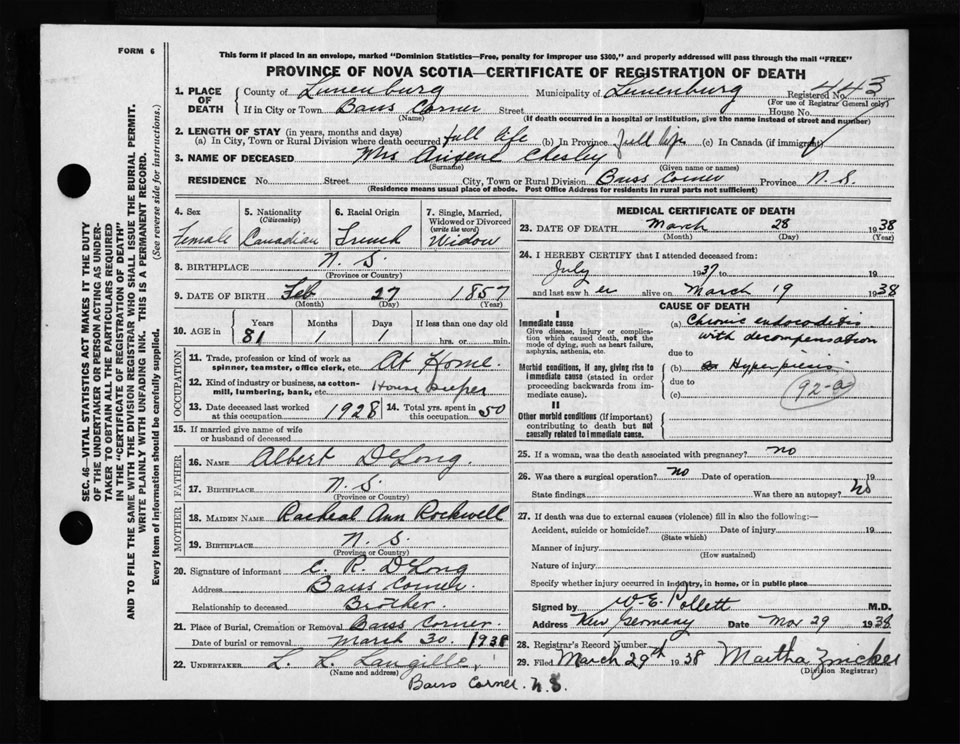 FORM 6
This form if placed in an envelope, marked "Dominion Statistics—Free, penalty for improper use $300," and properly addressed will pass through the mail "FREE"
PROVINCE OF NOVA SCOTIA—CERTIFICATE OF REGISTRATION OF DEATH
1. PLACE OF DEATH County of Lunenburg Municipality of Lunenburg Registered No. 443
(For use of Registrar General only)
If in City or Town Barss Corner Street House No.
(Name) (If death occurred in a hospital or institution, give the name instead of street and number)
2. LENGTH OF STAY (in years, months and days)
(a) In City, Town or Rural Division where death occurred full life (b) In Province full life (c) In Canada (if immigrant)
3. NAME OF DECEASED Mrs Chesley
(Surname) (Given name or names)
RESIDENCE No. Street City, Town or Rural Division Barss Corner Province N. S.
(Residence means usual place of abode. Post Office Address for residents in rural parts not sufficient)
4. Sex Female
5. Nationality (Citizenship) Canadian
6. Racial Origin French
7. Single, Married, Widowed or Divorced (write the word) Widow
8. BIRTHPLACE N. S.
(Province or Country)
9. DATE OF BIRTH Feb 27 1857
(Month) (Day) (Year)
10. AGE in Years Months Days If less than one day old
81 1 1 hrs. or min.
OCCUPATION
11. Trade, profession or kind of work as spinner, teamster, office clerk, etc. At Home.
12. Kind of industry or business, as cotton-mill, lumbering, bank, etc. House Keeper
13. Date deceased last worked at this occupation 1928 14. Total yrs. spent in this occupation 50
15. If married give name of wife or husband of deceased
FATHER
16. NAME Albert DeLong.
17. BIRTHPLACE N. S.
(Province or Country)
MOTHER
18. MAIDEN NAME Racheal Ann Rockwell
19. BIRTHPLACE N. S.
(Province or Country)
20. Signature of informant C. R. DeLong
Address Barss Corner.
Relationship to deceased Brother.
21. Place of Burial, Cremation or Removal Barss Corner.
Date of burial or removal March 30. 1938
22. UNDERTAKER L. L. Langille,
(Name and address)
Barss Corner. N. S.
MEDICAL CERTIFICATE OF DEATH
23. DATE OF DEATH March 28 1938
(Month) (Day) (Year)
24. I HEREBY CERTIFY that I attended deceased from:
July 1937 to 19
and last saw her alive on March 19 1938
CAUSE OF DEATH
I
Immediate cause
Give disease, injury or complication which caused death, not the mode of dying, such as heart failure, asphyxia, asthenia, etc.
(a) Chronic endocarditis with decompensation
due to
Morbid conditions, if any, giving rise to immediate cause (stated in order proceeding backwards from immediate cause).
(b) Hyperpiesis
due to
(c) 92-a
II
Other morbid conditions (if important) contributing to death but not causally related to immediate cause.
25. If a woman, was the death associated with pregnancy? no
26. Was there a surgical operation? no Date of operation 19
State findings Was there an autopsy? No
27. If death was due to external causes (violence) fill in also the following:—
Accident, suicide or homicide? Date of injury 19
(State which)
Manner of injury
(How sustained)
Nature of injury
Specify whether injury occurred in industry, in home, or in public place
Signed by W. E. Pollett M.D.
Address New Germany Date Mar 29 1938
28. Registrar's Record Number
29. Filed March 29th 1938 Martha Zwicker
(Division Registrar)
SEC. 46—VITAL STATISTICS ACT MAKES IT THE DUTY
OF THE UNDERTAKER OR PERSON ACTING AS UNDER-
TAKER TO OBTAIN ALL THE PARTICULARS REQUIRED
IN THE "CERTIFICATE OF REGISTRATION OF DEATH"
AND TO FILE THE SAME WITH THE DIVISION REGISTRAR WHO SHALL ISSUE THE BURIAL PERMIT.
WRITE PLAINLY WITH UNFADING INK. THIS IS A PERMANENT RECORD.
Every item of information should be carefully supplied. (See reverse side for instructions.)